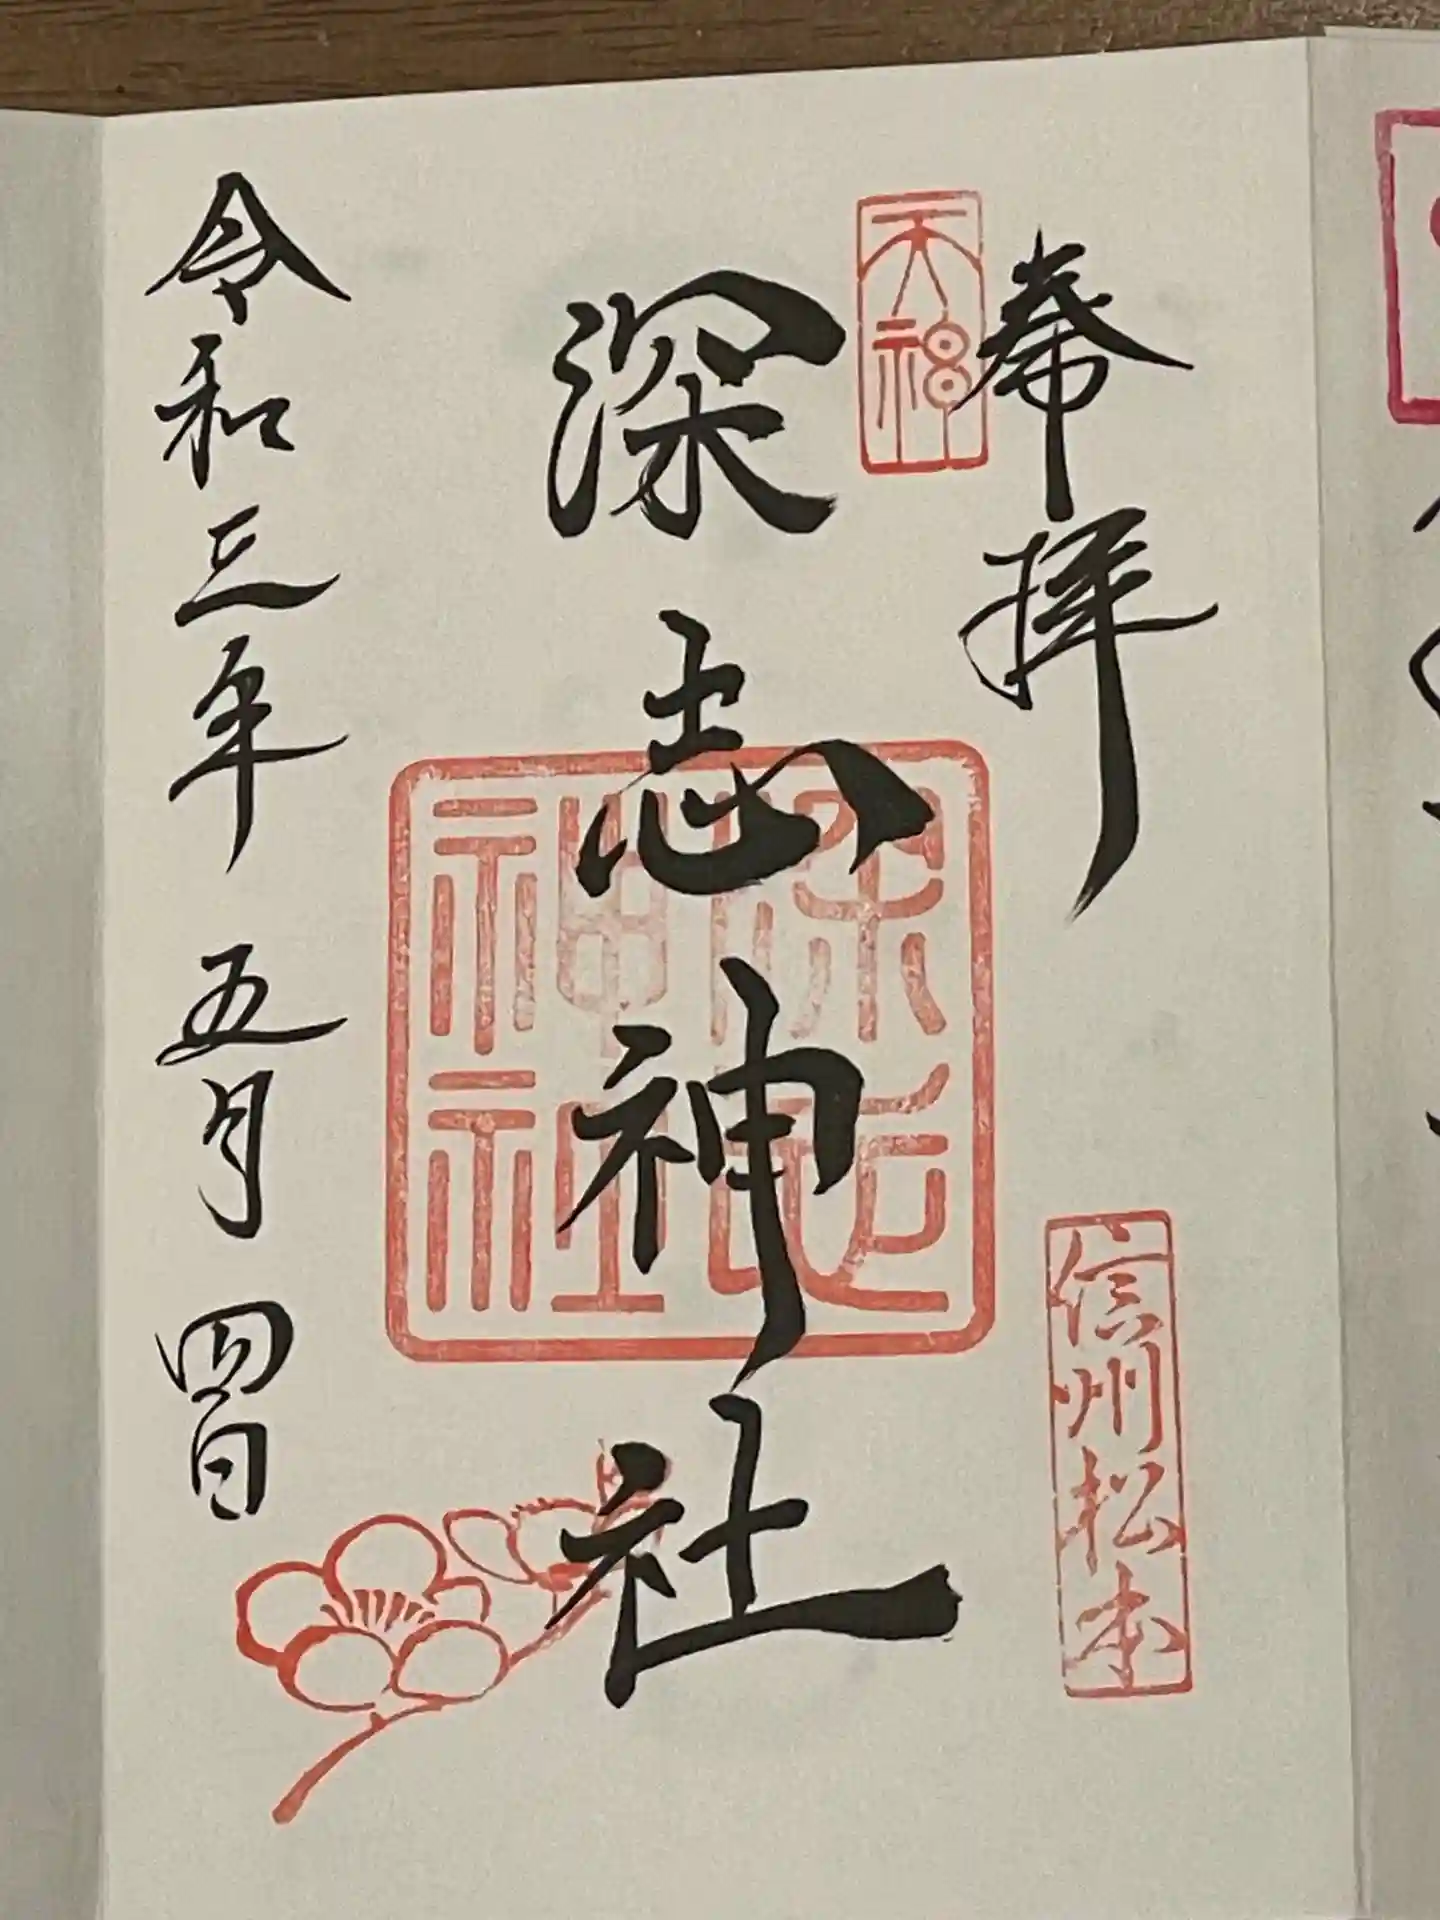 奉拝
天神
信州松本
深志神社
深志
神社
令和三年 五月 四日